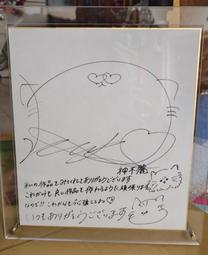 神木麗
私の作品をみてくれてありがとうございます
これからも良い作品を作れるように頑張ります
なので!! これからも応援してね
いつもありがとうございます